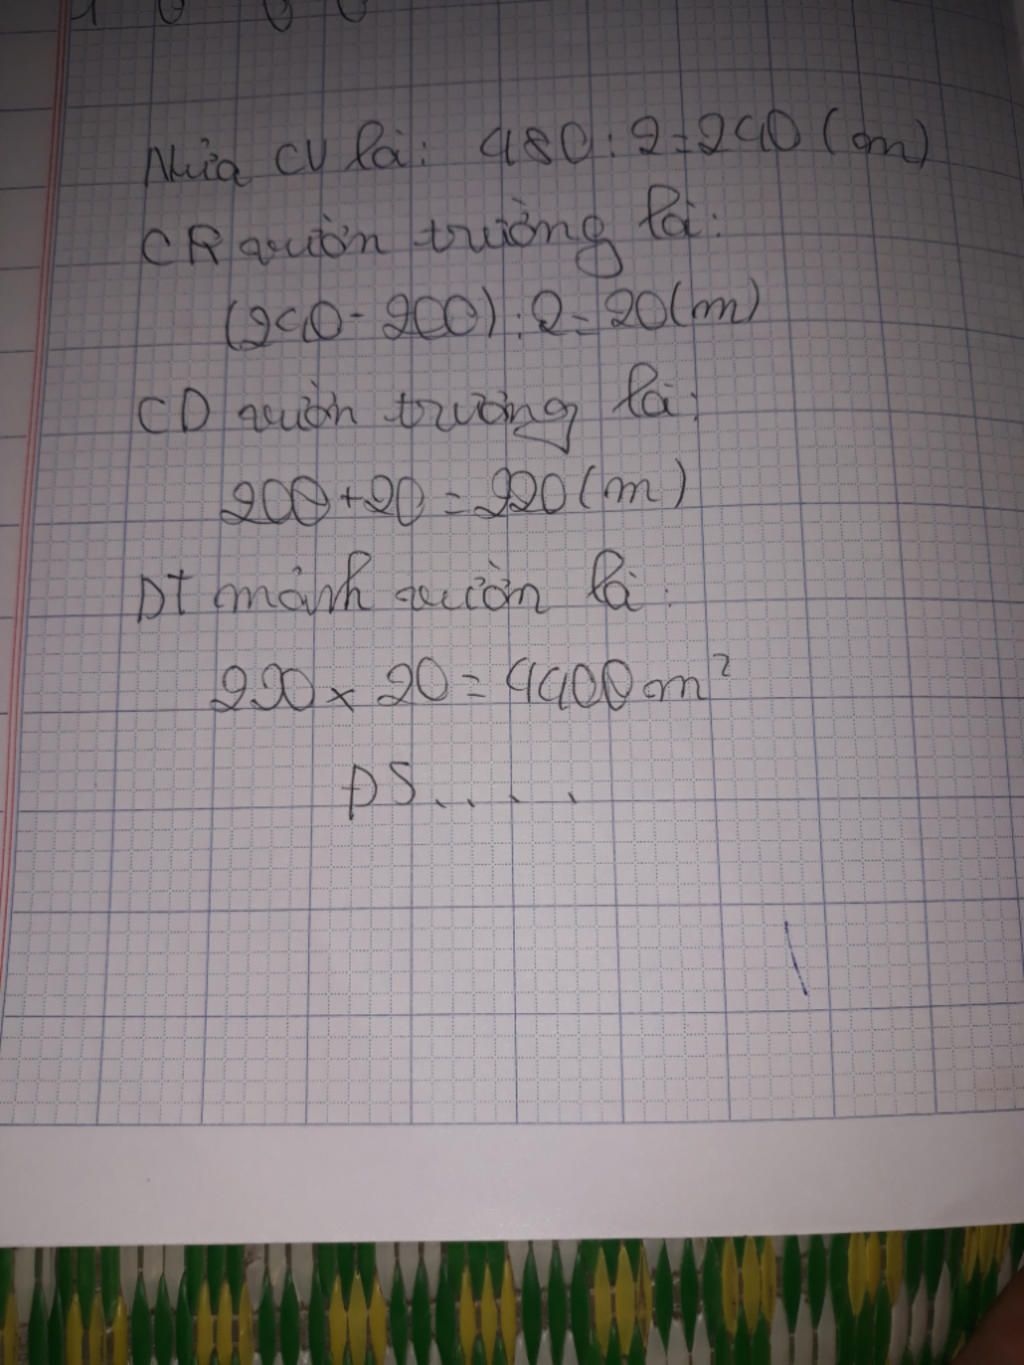 Nửa CV là: 480 : 2 = 240 (m)
CR vườn trường là:
(240 - 200) : 2 = 20 (m)
CD vườn trường là:
200 + 20 = 220 (m)
DT mảnh vườn là:
220 x 20 = 4400 m²
ĐS....